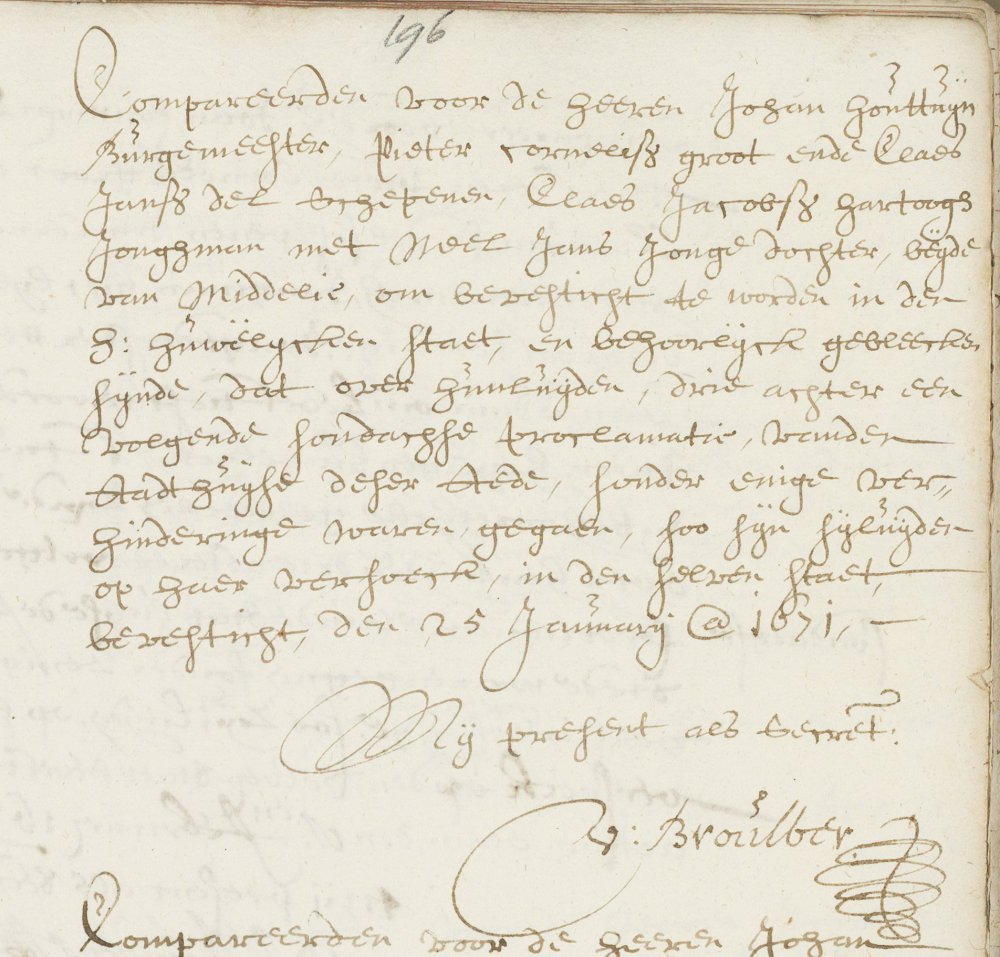 196
Compareerden voor de heeren Johan Houttuÿn
Burgemeester, Pieter Cornelisz groot ende Claes
Jansz del Schepenen, Claes Jacobsz hartoogh
Jonghman met Neel Jans Jonge dochter, beÿde
van Middelie, om bevesticht te worden in den
H: huwëlycklen staet, en behoorlÿck gebleecken
sÿnde, dat over hunluÿden, drie achter een
volgende sondachse proclamatie, vanden
Stadthuÿse deser Stede, sonder enige ver-
hinderinge waren gegaen, soo sÿn sÿluÿden
op haer versoeck, in den selven staet,
bevesticht, den 25 Januarij @ 1671,
Mij present als Secret:
V: Broülber
Compareerden voor de heeren Johan